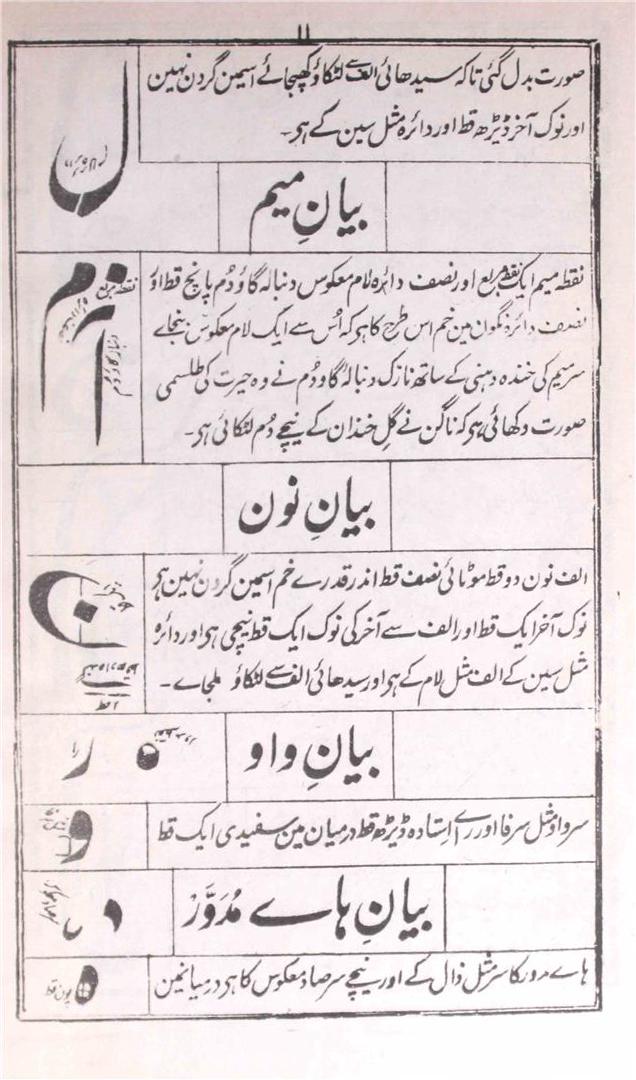 ۱۱
صورت بدل گئی تاکہ سیدھائی الف سے لٹکاؤ کھچجائے اسمین گردن نہین
اور نوک آخر ڈیڑھ قط اور دائرہ مثل سین کے ہی۔
بیانِ میم
نقطہ میم ایک نقطہ مربع اور نصف دائرہ لام معکوس دنبالہ گاؤ دُم پانچ قط اوْ
نصف دائرہ نگون مین خم اس طرح کا ہی کہ اُس سے ایک لام معکوس بنجاے
سر میم کی خندہ دہنی کے ساتھ نازک دنبالۂ گاو دُم نے وہ حیرت کی طلسمی
صورت دکھائی ہی کہ ناگن نے گلِ خندان کے نیچے دُم لٹکائی ہی۔
نقطہ مربع
دنبالہ گاؤ دُم
بیانِ نون
الف نون دو قط موٹائی نصف قط اندر قدرے خم اسمین گردن نہین ہی
نوک آخر ایک قط اور الف سے آخر کی نوک ایک قط نیچی ہی اور دائرہ
مثل سین کے الف مثل لام کے ہی اور سیدھائی الف سے لٹکاؤ ملجاے۔
ن
بیانِ واو
ر
سر واو مثل سر فا اور رے اِستادہ ڈیڑھ قط درمیان مین سفیدی ایک قط
و
بیانِ ہاے مُدَوَّرْ
ہاے مدور کا سر مثل ذال کے اور نیچے سر صاد معکوس کا ہی درمیانمین
پون قط